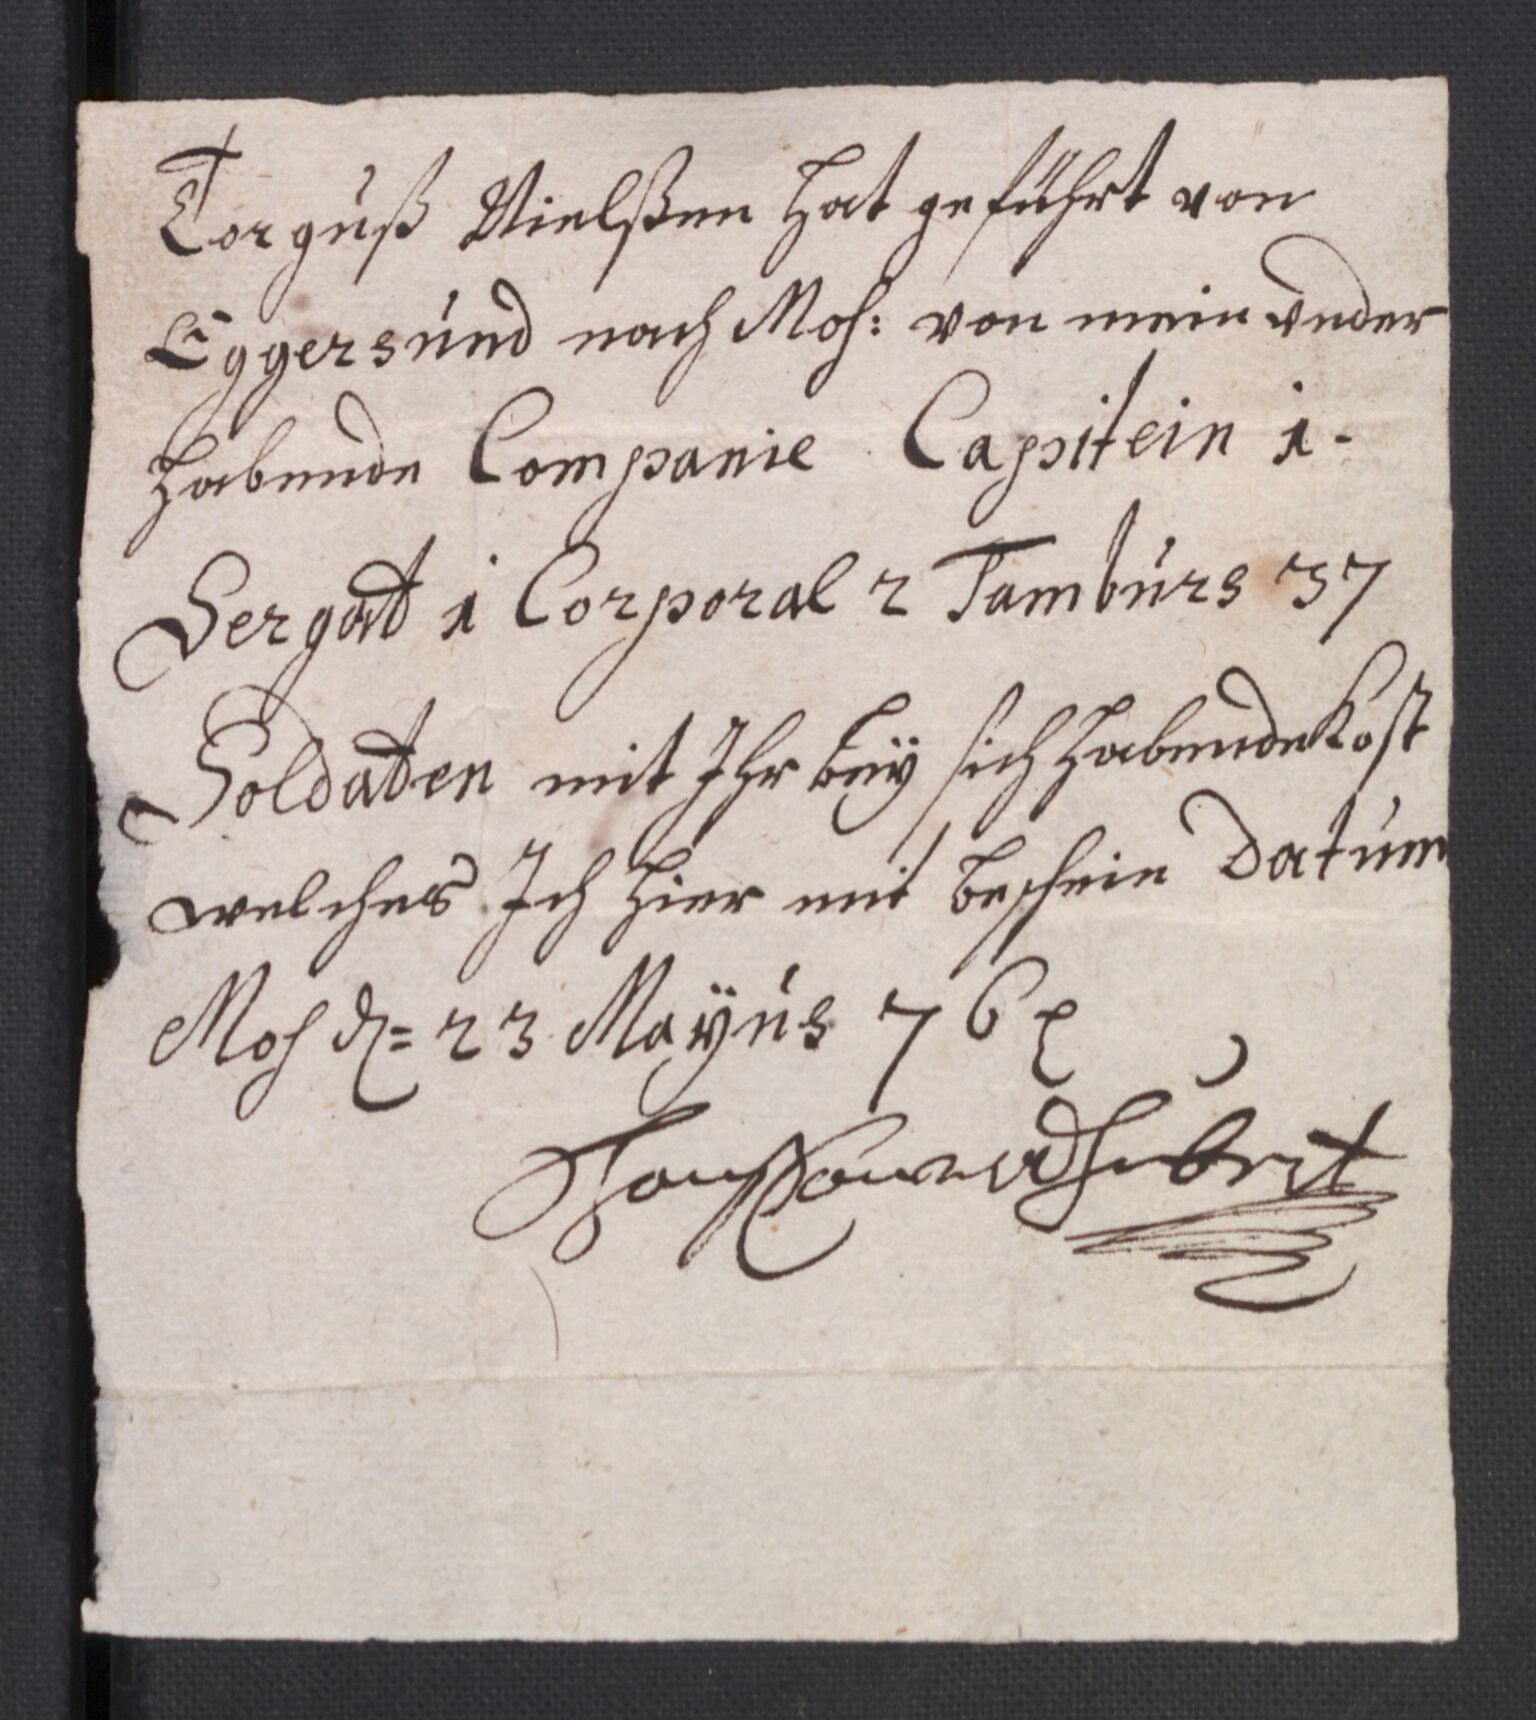 Torguß Nielßen hat geführt von
Eggersund nach Mos: von mein under
habende Companie Capitein 1-
Sergat 1 Corporal 2 Tamburs 37
Soldaten mit Ihr beÿ sich habende Kost
welches Ich hier mit beschein Datum
Mos d= 23 Mayüs 76